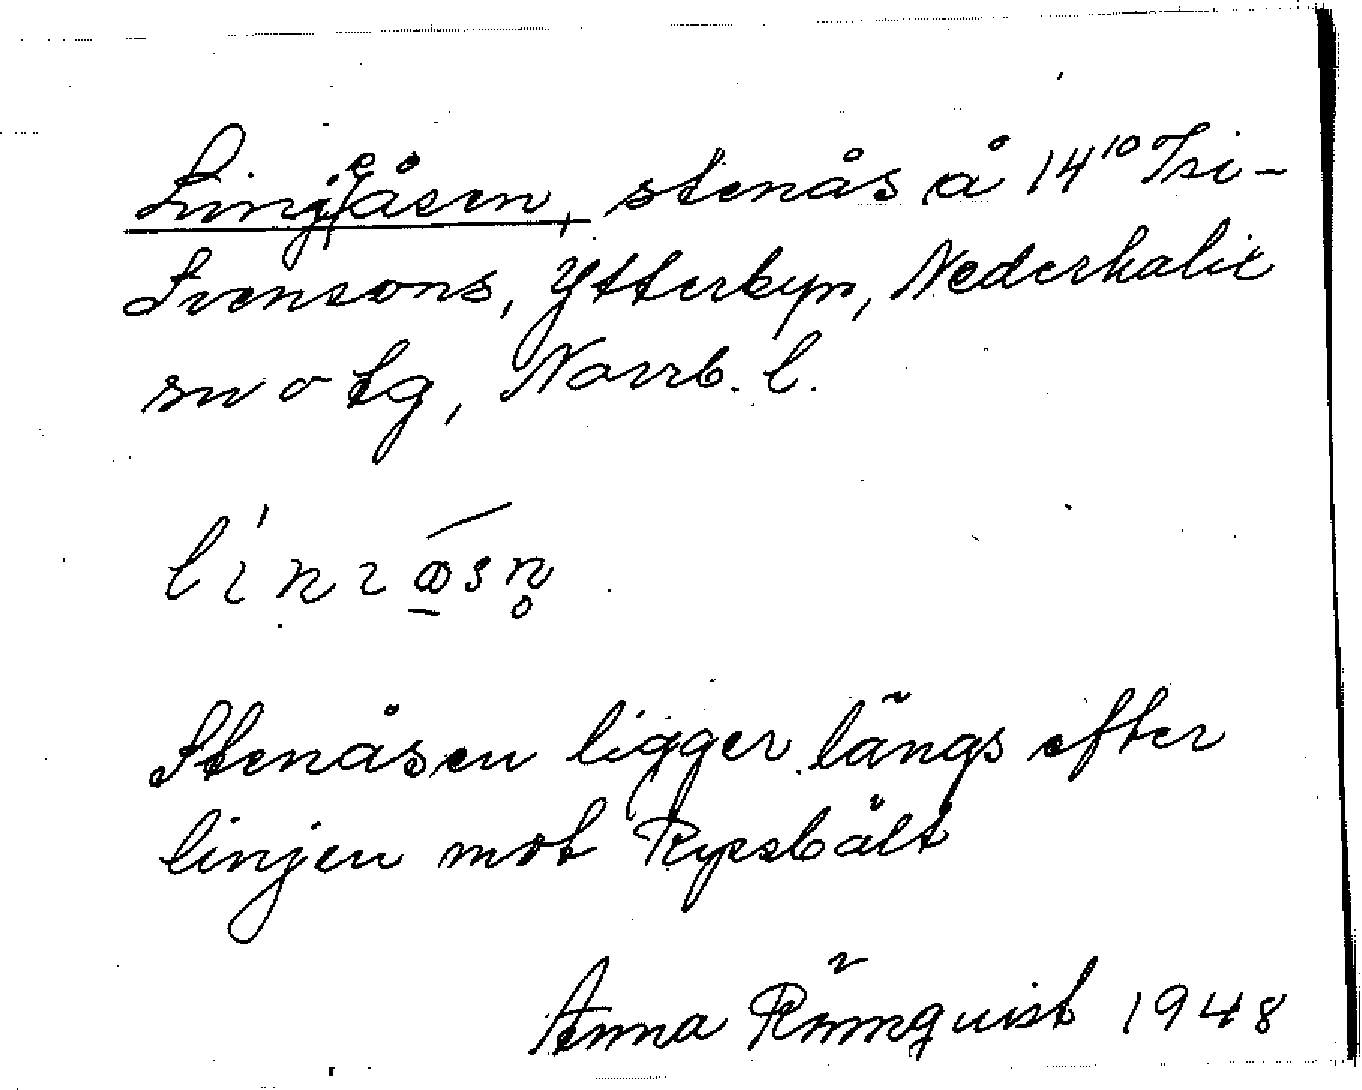 Linjeåsen, stenås å 14¹⁰ Tri-
Svensons, Ytterbyn, Nederkalix
sn o tg, Norrb. l.
Stenåsen ligger längs efter
linjen mot Ryssbält
Anna Rönnquist 1948